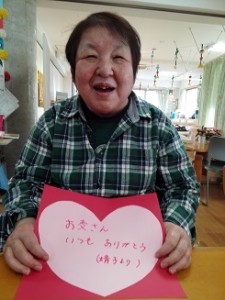 お父さん
いつも ありがとう
(晴子より)